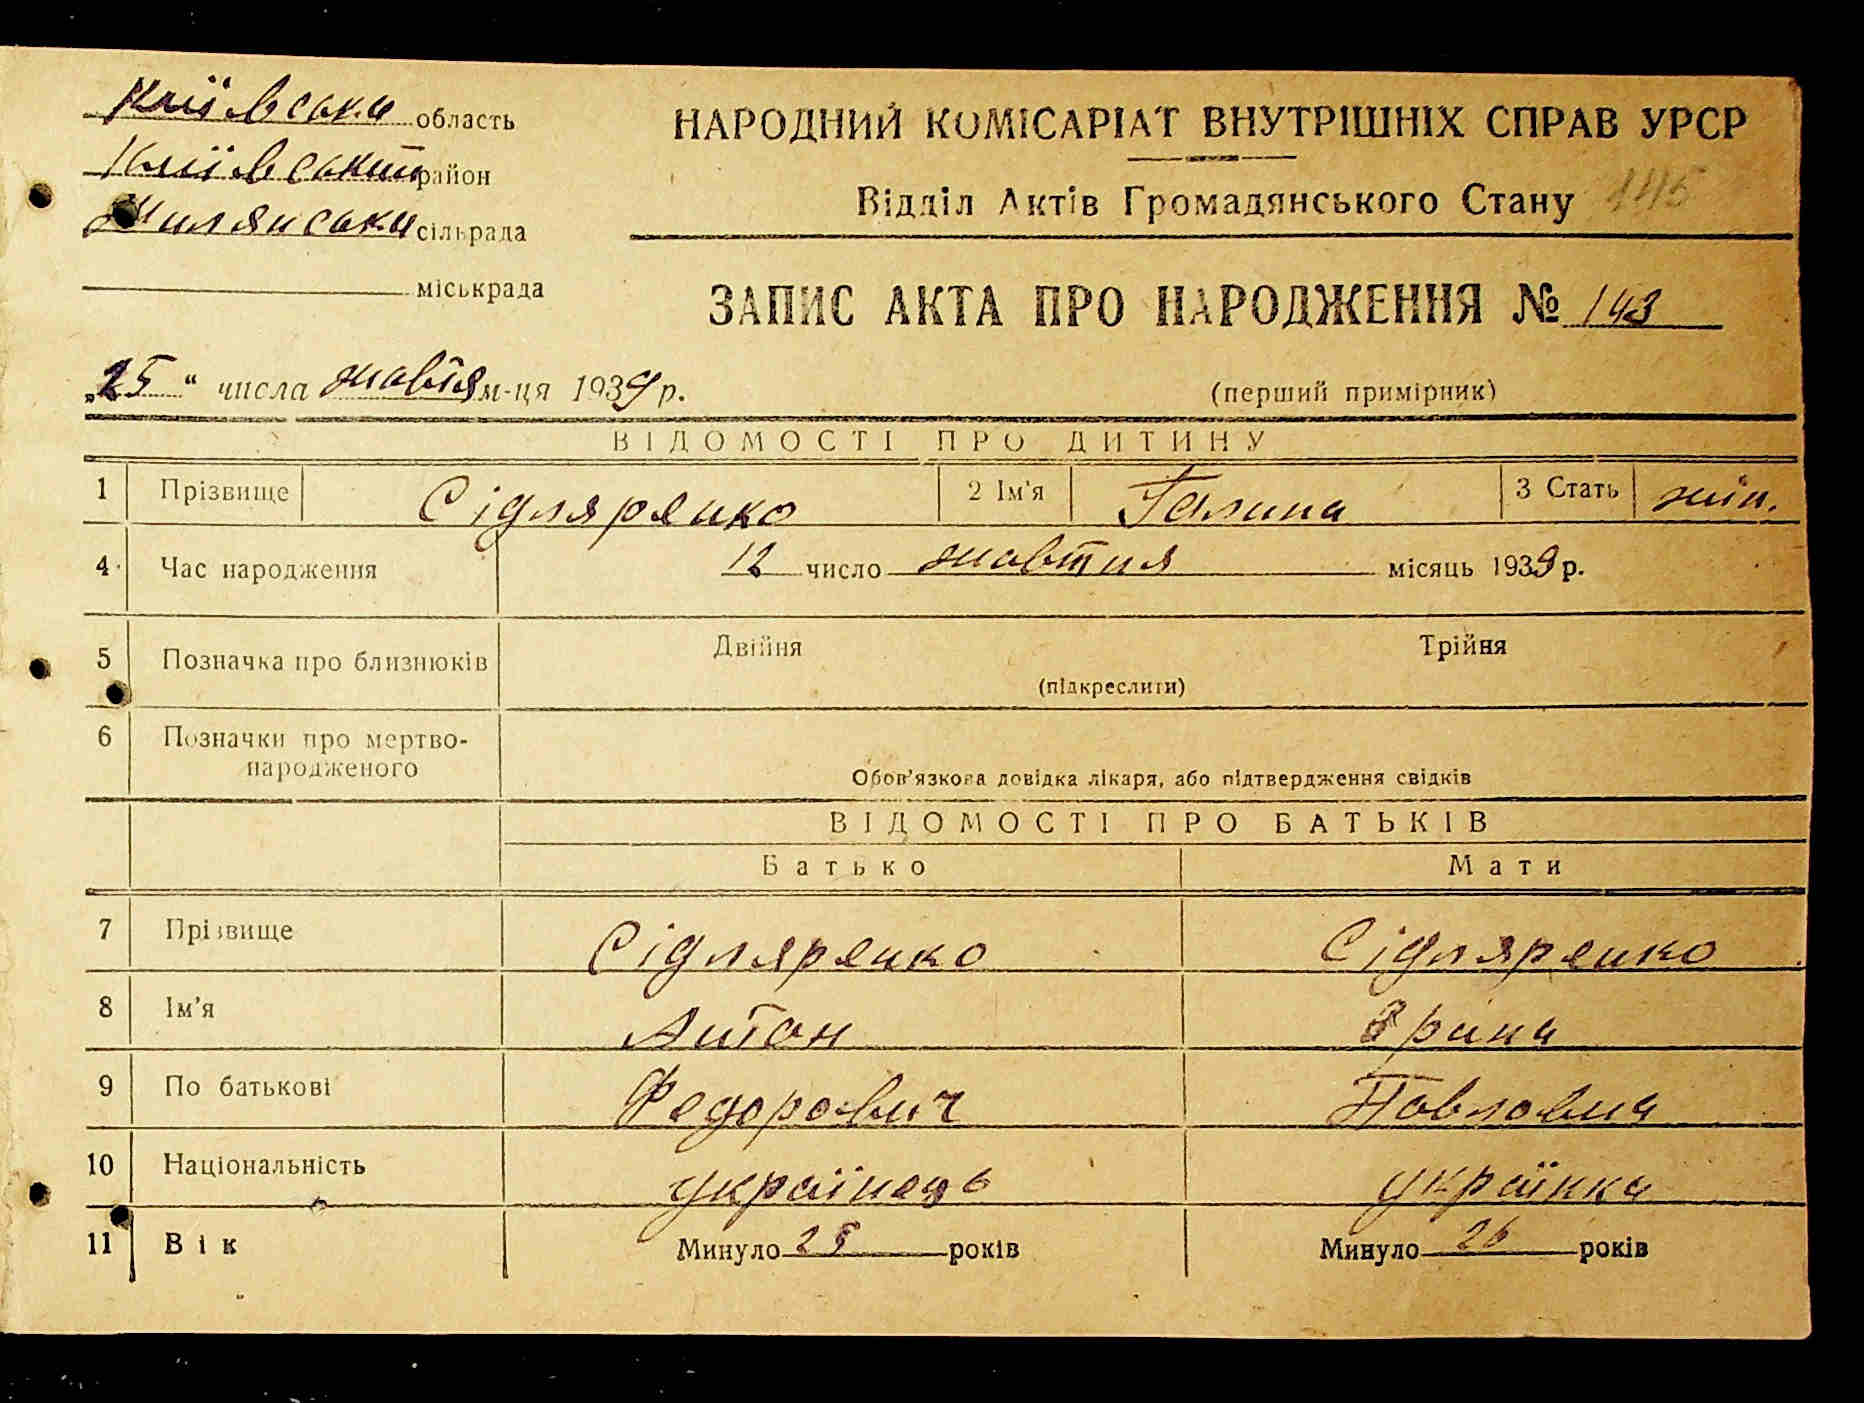 Київська область
Київський район
Жилянська сільрада
міськрада
НАРОДНИЙ КОМІСАРІАТ ВНУТРІШНІХ СПРАВ УРСР
Відділ Актів Громадянського Стану 145
ЗАПИС АКТА ПРО НАРОДЖЕННЯ № 143
„25“ числа жовтня м-ця 1939 р.
(перший примірник)
ВІДОМОСТІ ПРО ДИТИНУ
1 Прізвище Сідляренко 2 Ім'я Галина 3 Стать жін.
4 Час народження 12 число жовтня місяць 1939 р.
5 Позначка про близнюків Двійня Трійня
(підкреслити)
6 Позначки про мертво-
народженого
Обов'язкова довідка лікаря, або підтвердження свідків
ВІДОМОСТІ ПРО БАТЬКІВ
Батько Мати
7 Прізвище Сідляренко Сідляренко
8 Ім'я Антон Яріна
9 По батькові Федорович Павловна
10 Національність українець українка
11 Вік Минуло 25 років Минуло 26 років